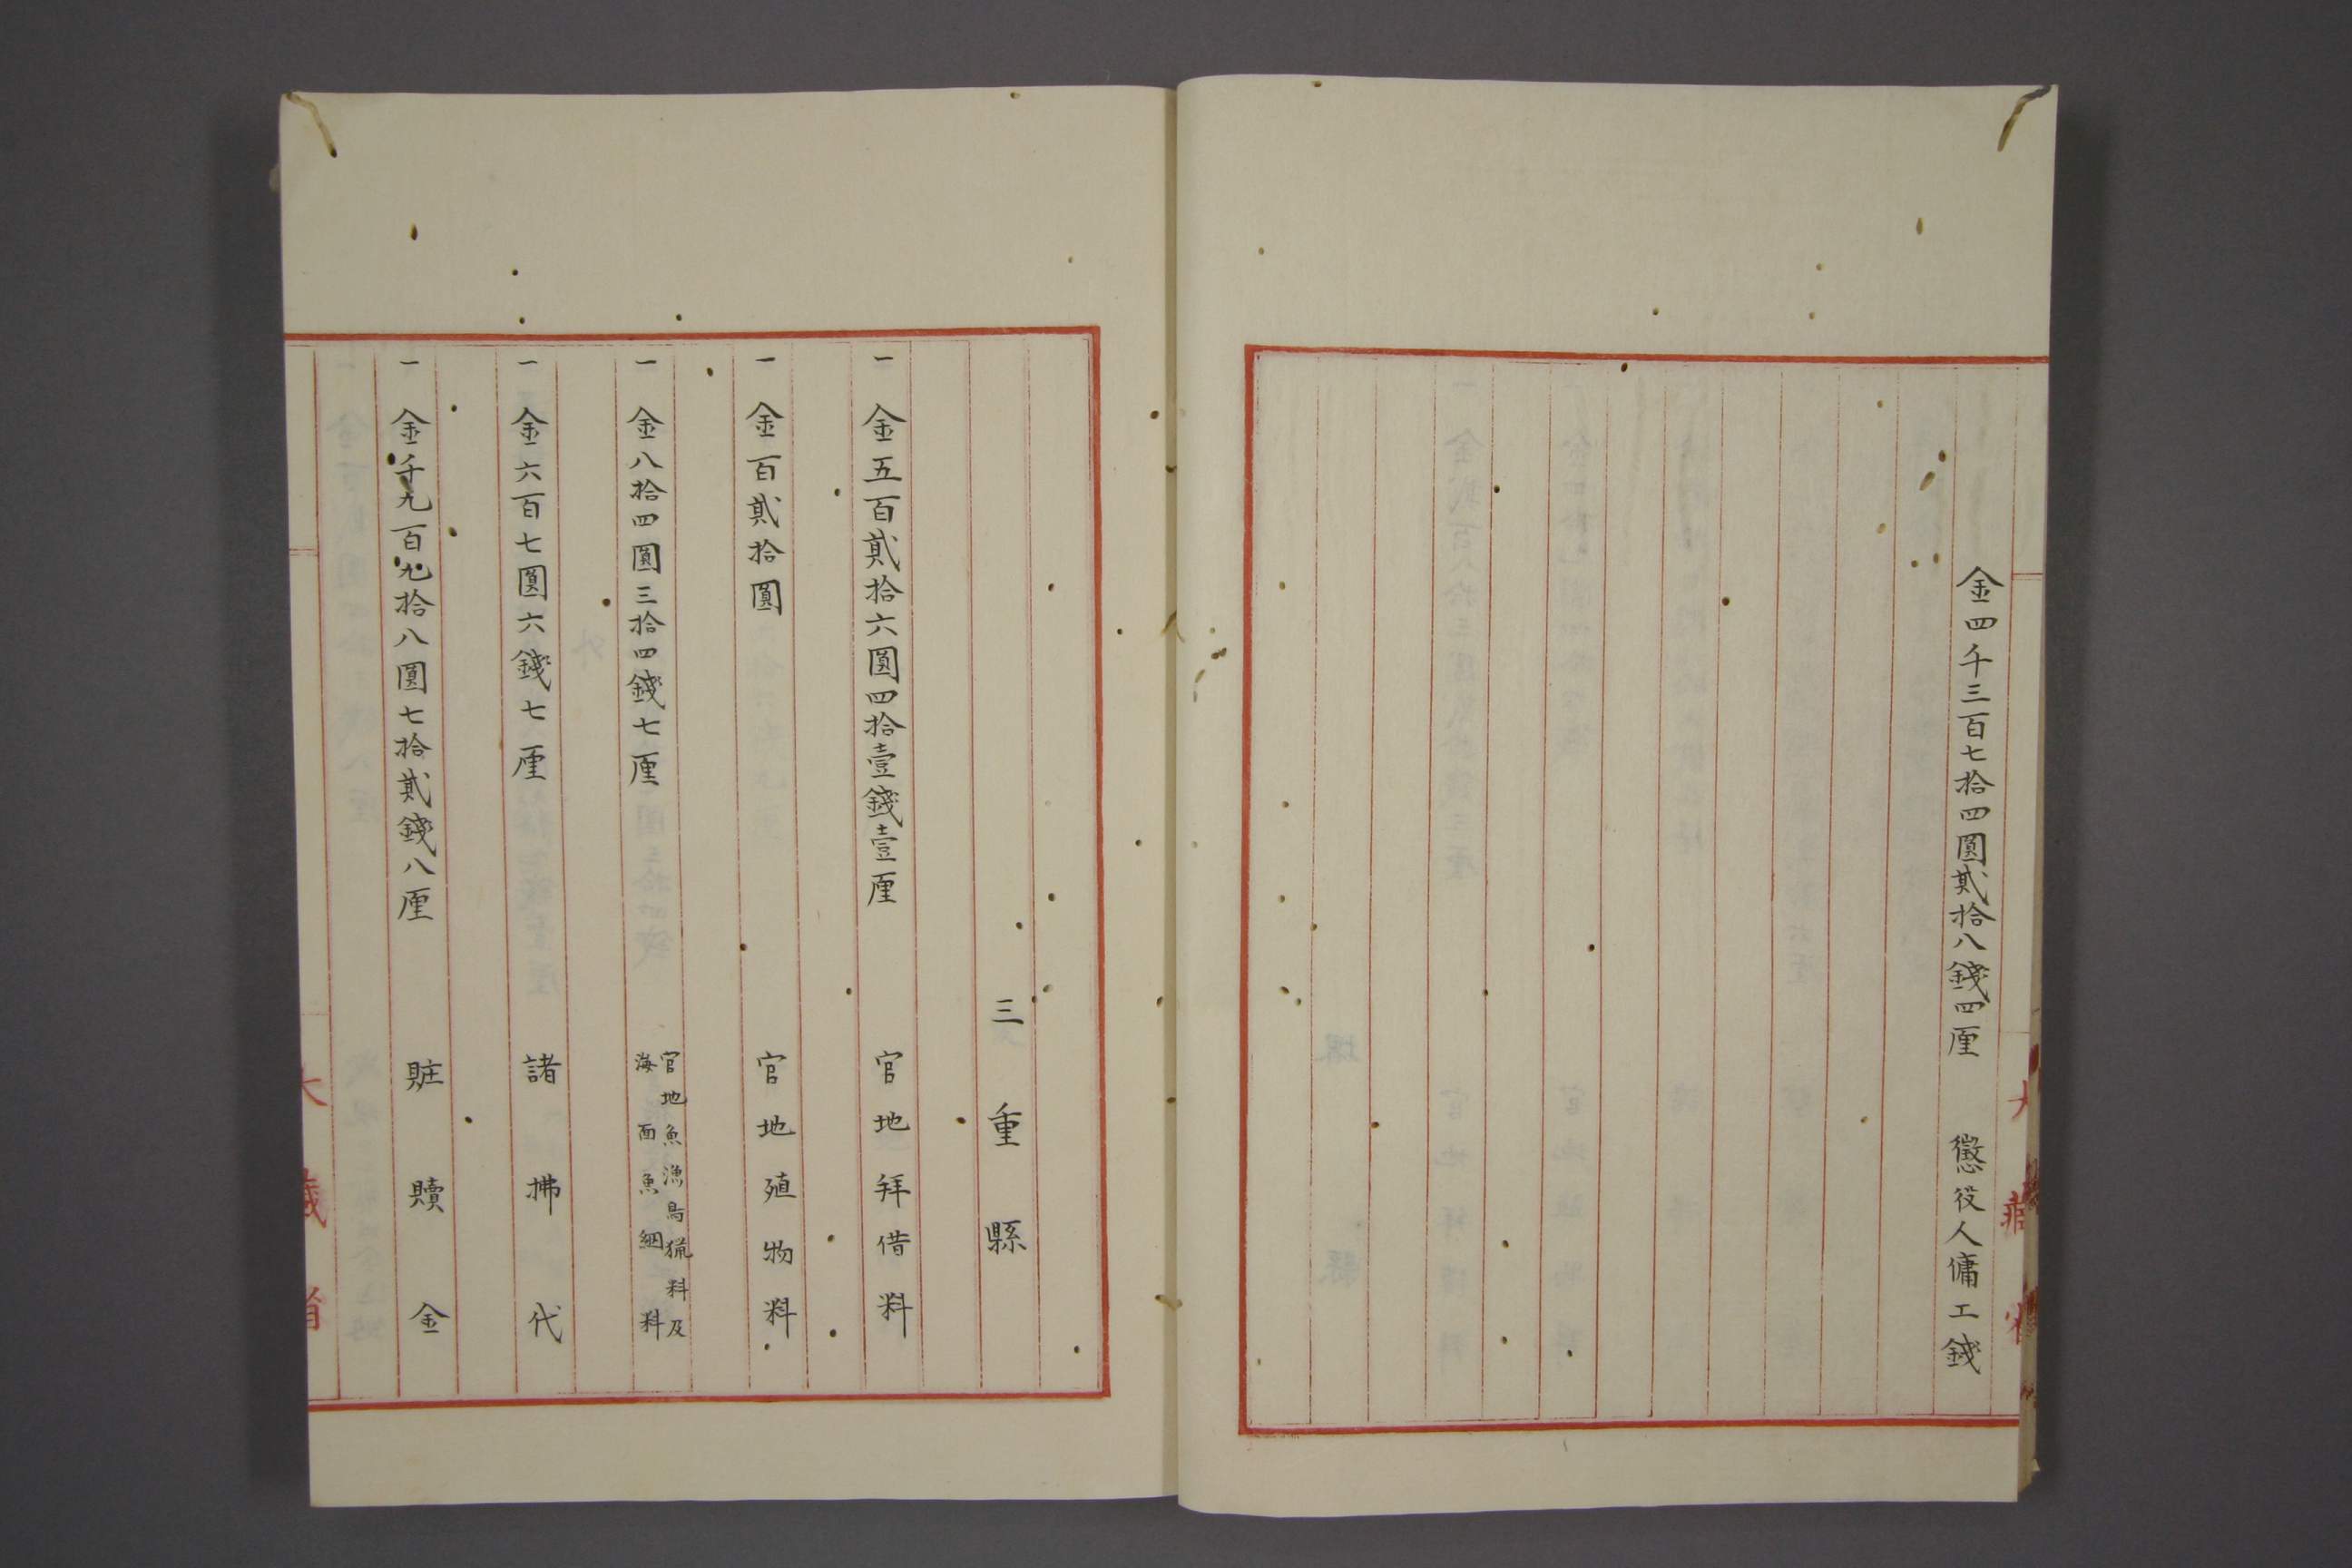 金四千三百七拾四圓貳拾八錢四厘 懲役人傭工錢
三重縣
一 金五百貳拾六圓四拾壹錢壹厘 官地拜借料
一 金百貳拾圓 官地殖物料
一 金八拾四圓三拾四錢七厘 官地魚漁鳥猟料及
海面魚網料
一 金六百七圓六錢七厘 諸拂代
一 金千九百九拾八圓七拾貳錢八厘 賍贖金